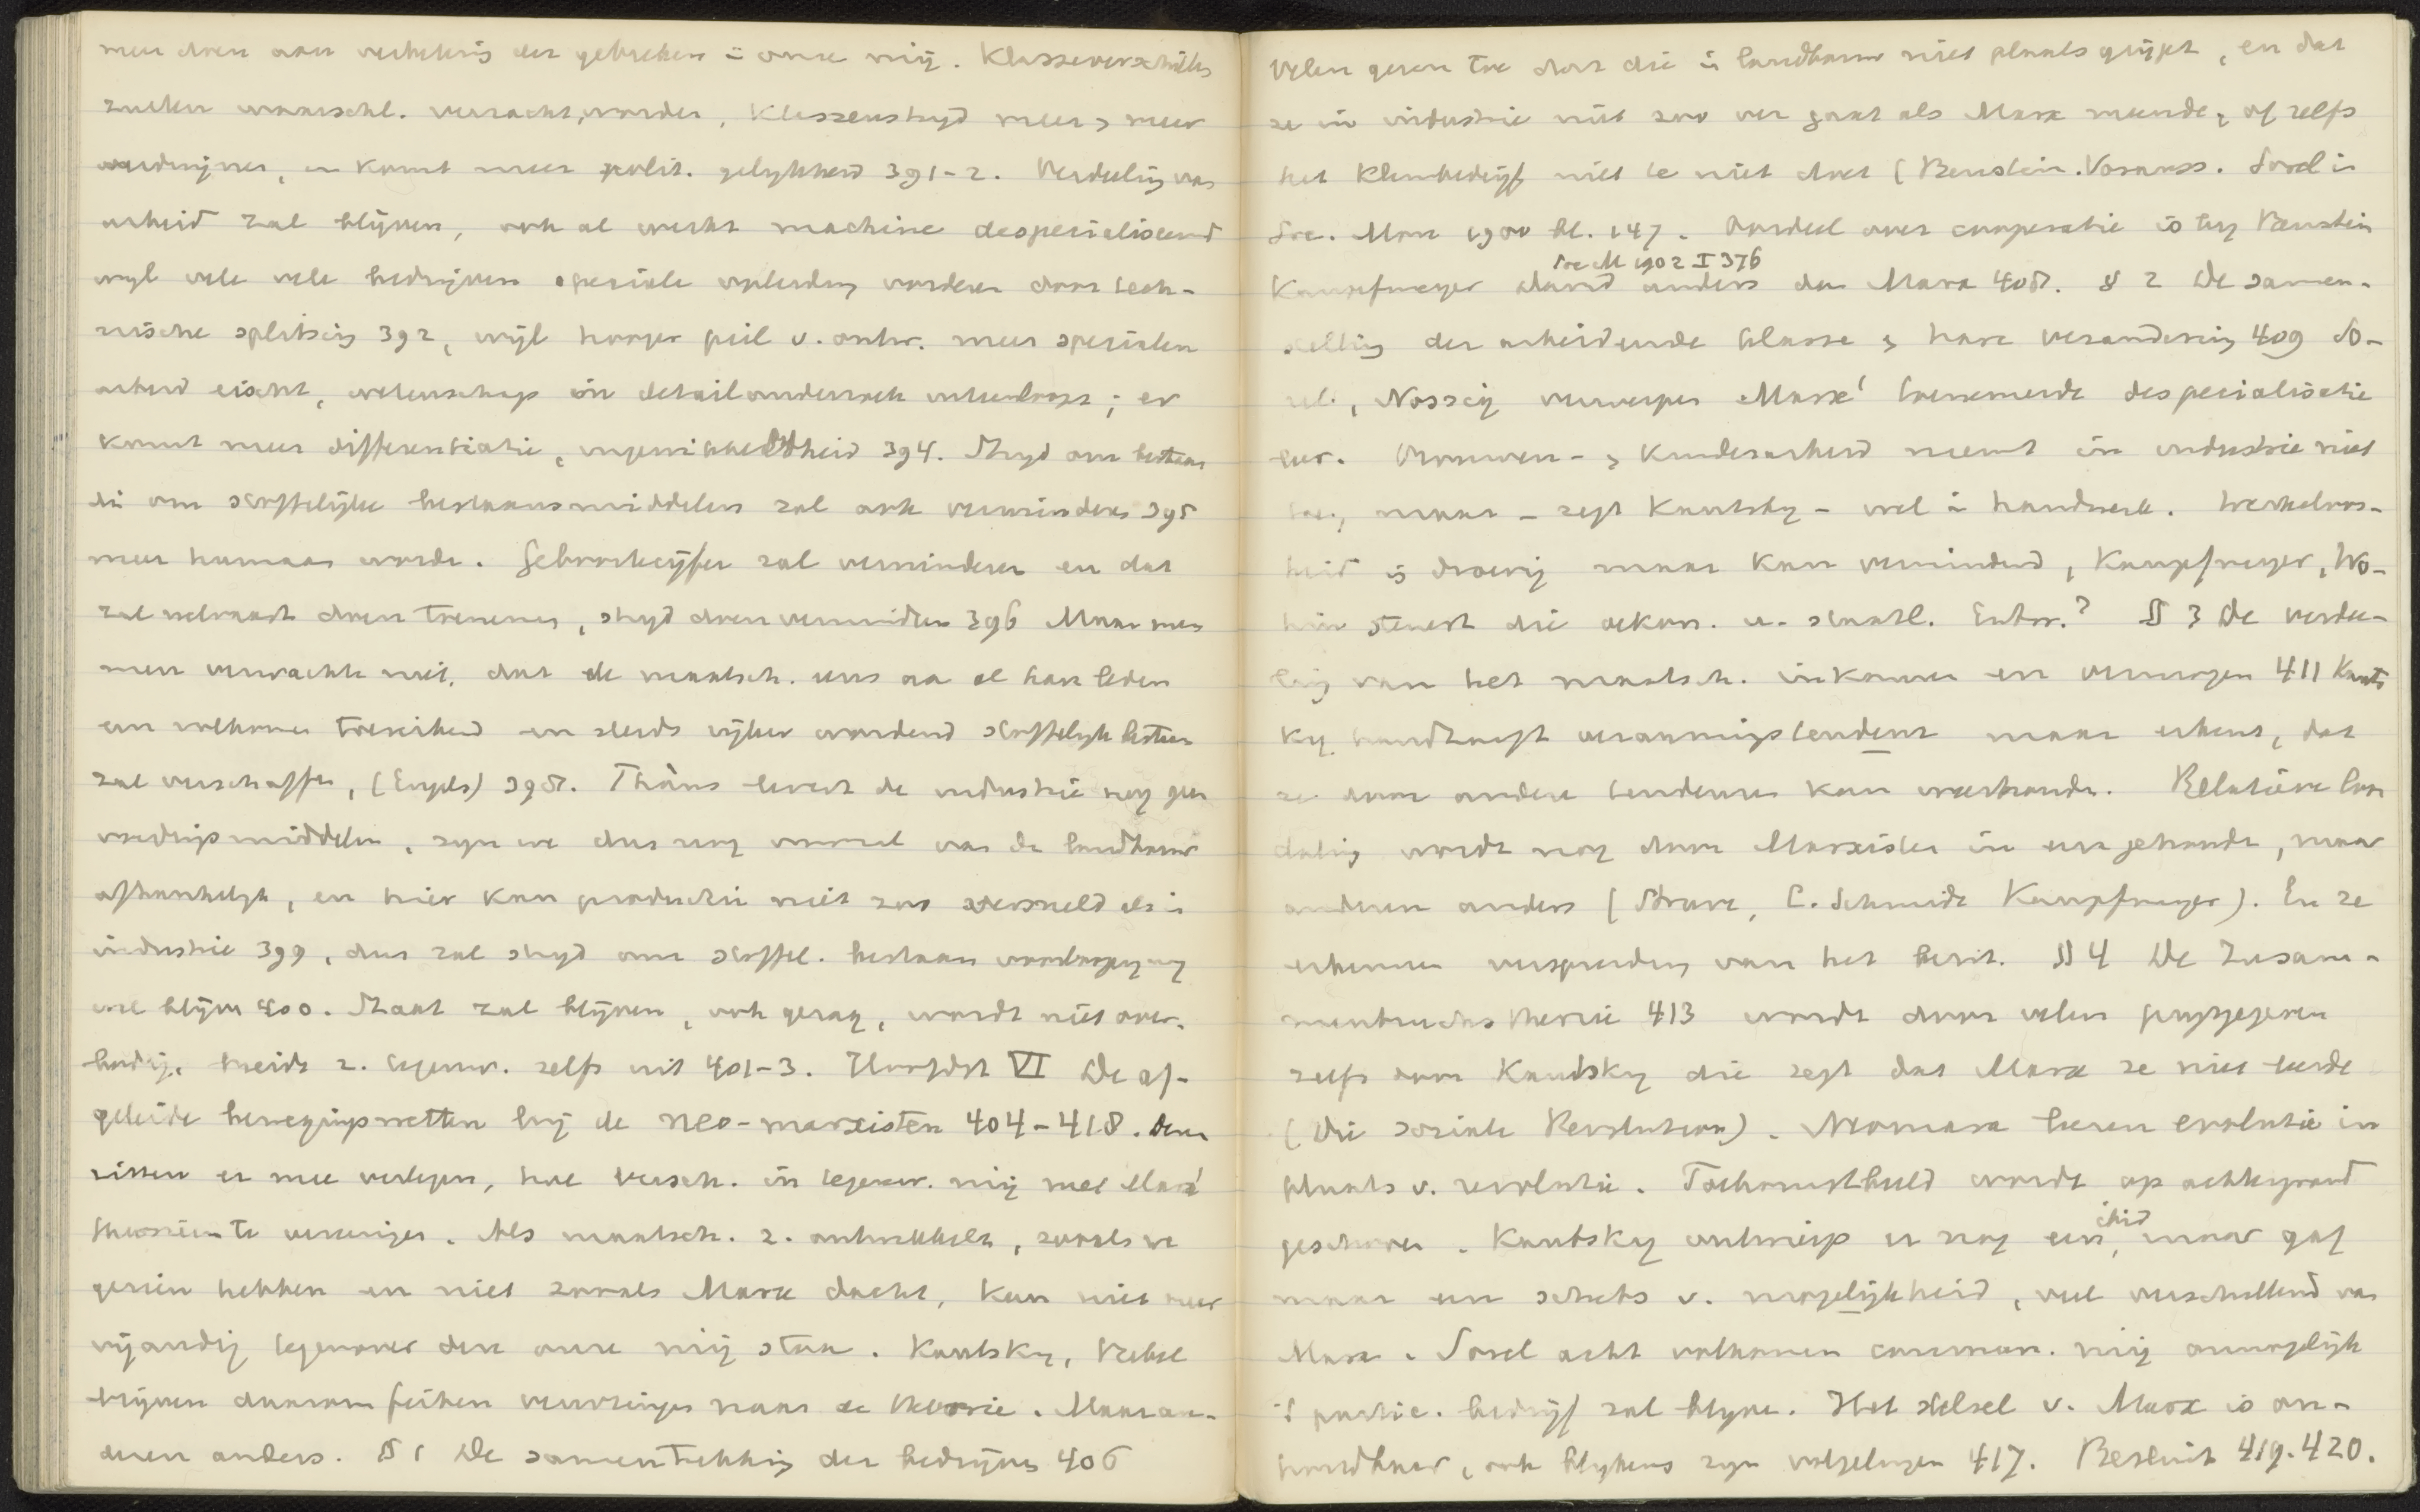 men doen aan verbetering der gebreken in onze mij. Klasseverschillen
zullen waarschl. verzacht worden, klassenstrijd meer & meer
verdwijnen, en komt meer polit. gelijkheid 391-2. Verdeeling van
arbeid zal blijven, ook al werkt machine despecialiseerend
wijl vele vele bedrijven speciale opleiding vorderen door tech-
nische splitsing 392, wijl hooger peil v. ontw. meer specialen
arbeid eischt, wetenschap in detailonderzoek uiteenloopt; er
komt meer differentiatie, ingewikkeldheid 394. Strijd om bestaan
di om stoffelijke bestaansmiddelen zal ook verminderen 395
meer humaan worden. Geboortecijfer zal verminderen en dat
zal welvaart doen toenemen, strijd doen verminderen 396 Maar men
men verwachte niet, dat de maatsch. eens aa al haar leden
een volkomen toereikend en steeds rijker wordend stoffelijk bestaan
zal verschaffen, (Engels) 398. Tháns levert de industrie nog geen
voedingsmiddelen, zijn we dus nog vooral van de landbouw
afhankelijk, en hier kan productie niet zoo versneld als in
industrie 399, dus zal strijd om stoffel. bestaan voorloopig nog
wel blijven 400. Staat zal blijven, ook gezag, wordt niet over-
bodig, breidt z. tegenw. zelfs uit 401-3. Hoofdst VI De af-
geleide bewegingswetten bij de neo-marxisten 404-418. Deze
zitten er mee verlegen, hoe versch. in tegenw. mij met Marx'
theorieën te vereenigen. Als maatsch. z. ontwikkelt, zooals we
gezien hebben en niet zooals Marx dacht, kan niet meer
vijandig tegenover deze onze mij staan. Kautsky, Bebel
blijven daarom feiten verwringen naar de theorie. Maar an-
deren anders. § 1 De samentrekking der bedrijven 406
Velen geven toe dat die in landbouw niet plaats grijpt, en dat
ze in industrie niet zoo ver gaat als Marx meende, of zelfs
het kleinbedrijf niet te niet doet (Bernstein. Vorauss. Sorel in
Soc. Mon 1900 bl. 147. Oordeel over cooperatie is bij Bernstein
Soc M 1902 I 376
Kampfmeyer David anders dan Marx 408. § 2 De samen-
stelling der arbeidende klasse & hare verandering 409 So-
rel, Nossig verwerpen Marx' toenemende despecialisatie
leer. Vrouwen- & kinderarbeid neemt in industrie niet
toe, maar - zegt Kautsky - wel in handwerk. Werkeloos-
heid is droevig maar kan verminderd, Kampfmeyer, Wo-
hin steuert die oekon. u. staatl. Entw.? § 3 De verdee-
ling van het maatsch. inkomen en vermogen 411 Kauts
ky handhaaft verarmingstendenz maar erkent, dat
ze door andere tendenzen kan weerhouden. Relatieve loon
daling wordt nog door Marxisten in eere gehouden, maar
anderen anders (Struve, C. Schmidt Kampfmeyer). En ze
erkennen verspreiding van het bezit. § 4 De Zusam-
menbruchstheorie 413 wordt door velen prijsgegeven
zelfs door Kautsky die zegt dat Marx ze niet leerde
(Die soziale Revolution). Neomarx leeren evolutie in
plaats v. revolutie. Toekomstbeeld wordt op achtergrond
geschoven. Kautsky ontwierp er nog een, maar gaf
maar een schets v. mogelijkheid, veel verschillend van
Marx. Sorel acht volkomen commun. mij onmogelijk
partic. bedrijf zal blijven. Het stelsel v. Marx is on-
houdbaar, ook blijkens zijn volgelingen 417. Besluit 419-420.